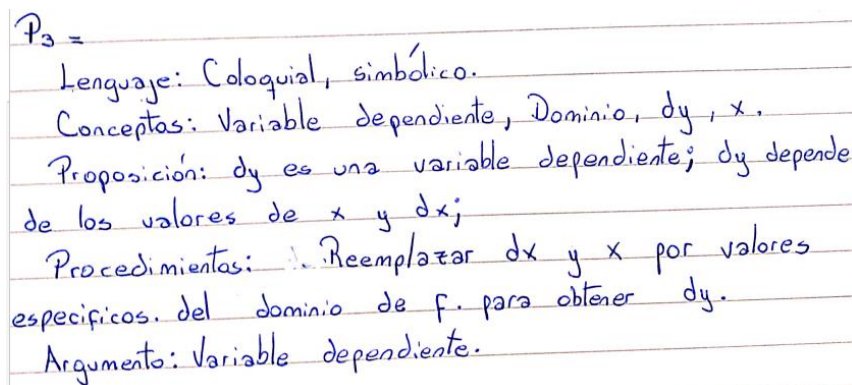 P3 =
Lenguaje: Coloquial, simbólico.
Conceptos: Variable dependiente, Dominio, dy, x.
Proposición: dy es una variable dependiente; dy depende
de los valores de x y dx;
Procedimientos: Reemplazar dx y x por valores
especificos. del dominio de f. para obtener dy.
Argumento: Variable dependiente.